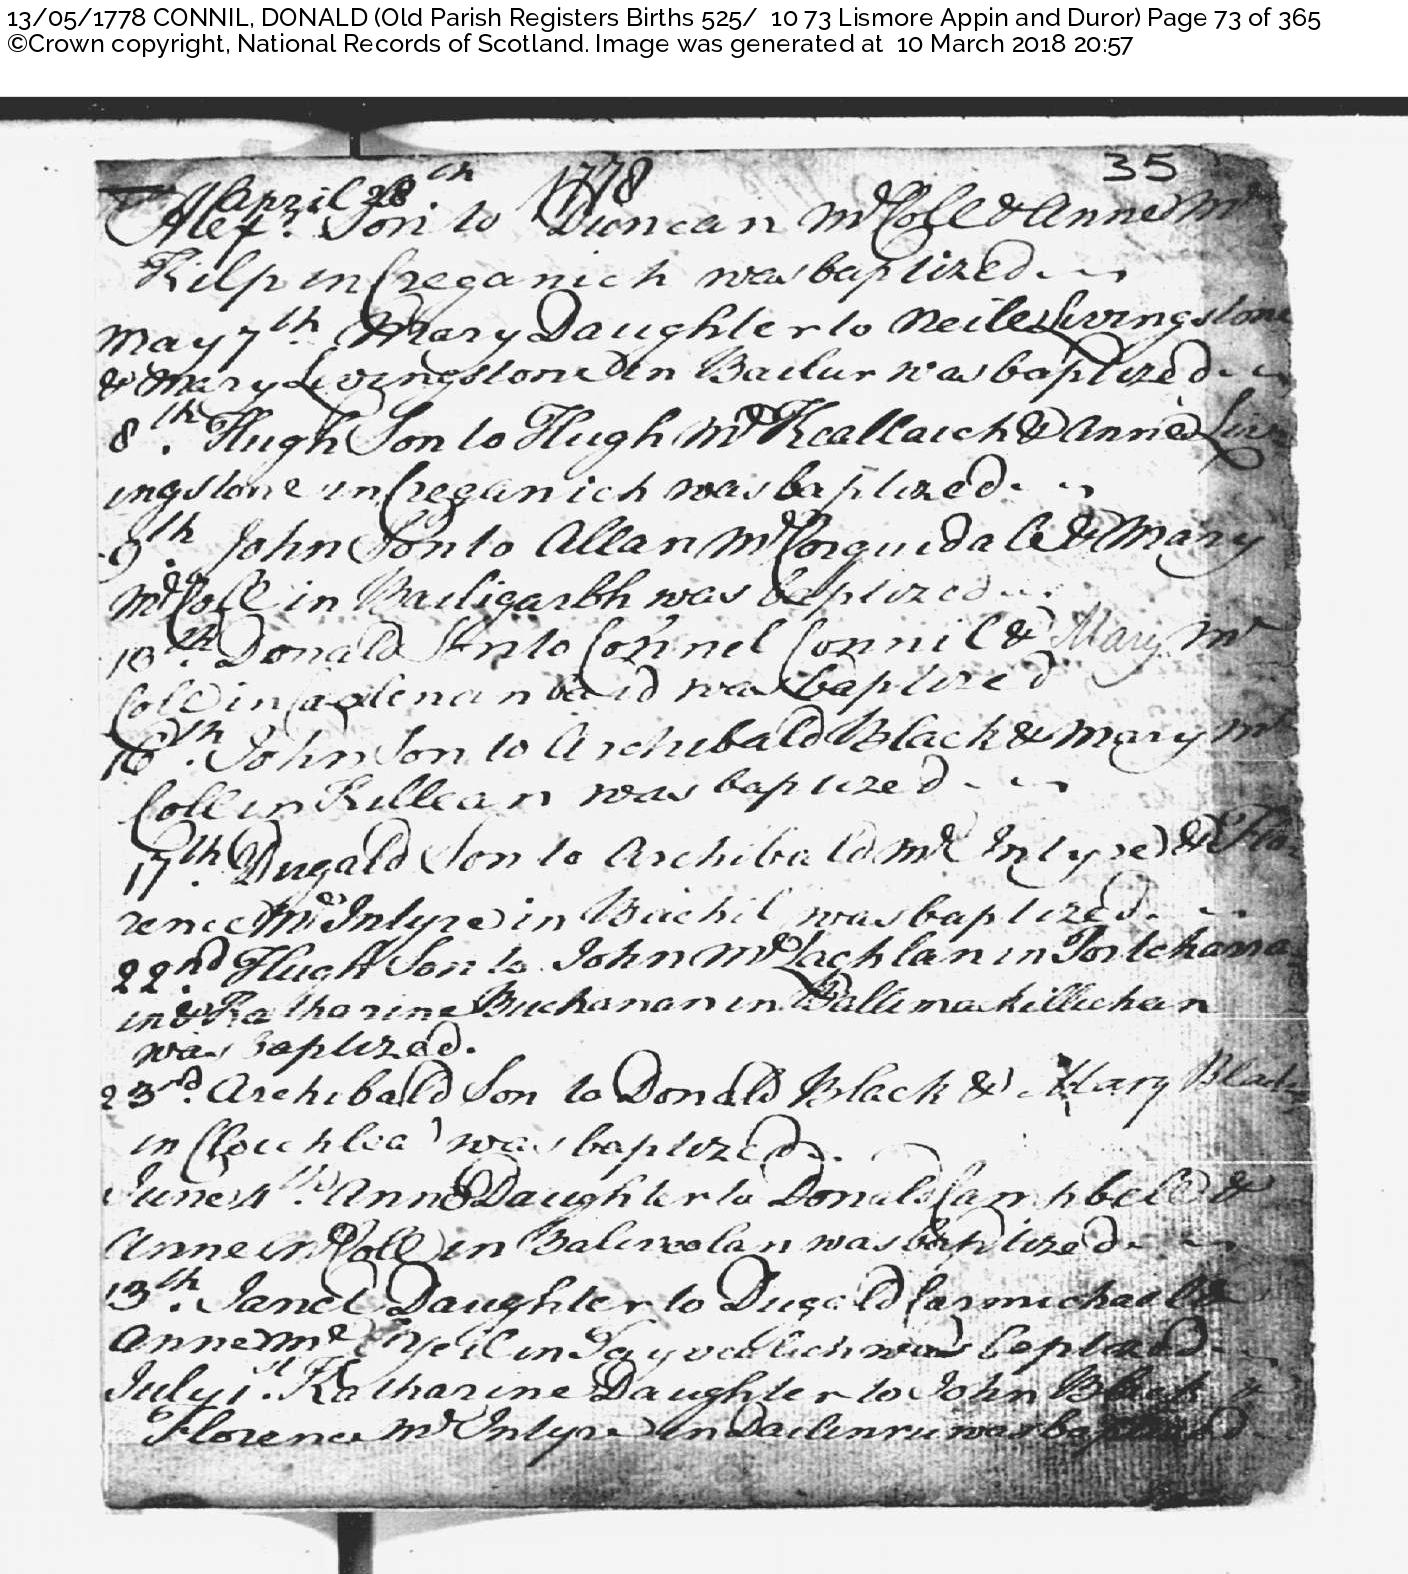 13/05/1778 CONNIL, DONALD (Old Parish Registers Births 525/ 10 73 Lismore Appin and Duror) Page 73 of 365
©Crown copyright, National Records of Scotland. Image was generated at 10 March 2018 20:57
35
April 28th. 1778
Alexr. Son to Duncan McColl & Anne Mc
Kilp in Creganich was baptized
May 7th. Mary Daughter to Neile Livingstone
& Mary Livingstone in Bailur was baptized
8th. Hugh Son to Hugh McKeallaich & Anne Liv
ingstone in Creganich was baptized
9th. John Son to Allan McCorquidale & Mary
McColl in Bailigarbh was baptized
13th. Donald Son to Connel Connil & Mary Mc
Coll in was baptized
16th. John Son to Archibald Black & Mary Mc
Coll in Killean was baptized
17th. Dugald Son to Archibald McIntyre & Flo
rence McIntyre in Bachil was baptized
22nd. Hugh Son to John McLachlan in Portcharra
in & Katharine Buchanan in Ballimackillichan
was baptized.
23rd. Archibald Son to Donald Black & Mary Black
in Clouchlea was baptized
June 4th. Anne Daughter to Donald Campbell &
Anne McColl in Baliveolan was baptized
13th. Janet Daughter to Dugald Carmichael &
Anne Mc in was baptized
July 1st. Katharine Daughter to John Black &
Florence McIntyre in was baptized